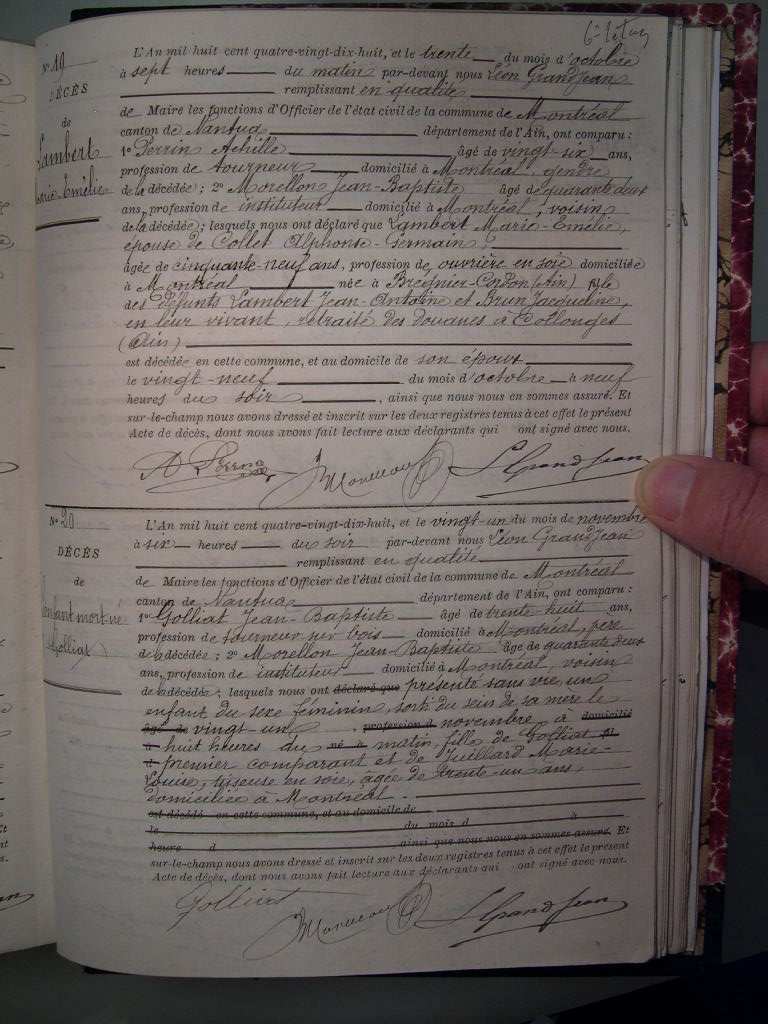 Nº 19
DÉCÈS
de
Lambert
Marie-Emélie
L'An mil huit cent quatre-vingt-dix-huit, et le trente du mois d'octobre
à sept heures du matin par-devant nous Léon Grandjean
remplissant en qualité
de Maire les fonctions d'Officier de l'état civil de la commune de Montréal
canton de Nantua département de l'Ain, ont comparu :
1º Perrin Achille âgé de vingt-six ans,
profession de tourneur domicilié à Montréal, gendre
de la décédée ; 2º Morellon Jean-Baptiste âgé de quarante deux
ans, profession de instituteur domicilié à Montréal, voisin
de la décédée ; lesquels nous ont déclaré que Lambert Marie-Emélie,
épouse de Collet Alphonse-Germain
âgée de cinquante-neuf ans, profession de ouvrière en soie domiciliée
à Montréal née à Bregnier-Cordon (Ain) fille
des défunts Lambert Jean-Antoine et Brun Jacqueline,
en leur vivant, retraité des douanes à Collonges
(Ain)
est décédée en cette commune, et au domicile de son époux
le vingt-neuf du mois d'octobre à neuf
heures du soir, ainsi que nous nous en sommes assuré. Et
sur-le-champ nous avons dressé et inscrit sur les deux registres tenus à cet effet le présent
Acte de décès, dont nous avons fait lecture aux déclarants qui ont signé avec nous.
A Perrin Morellon L Grandjean
Nº 20
DÉCÈS
de
(enfant mort-né
Golliat)
L'An mil huit cent quatre-vingt-dix-huit, et le vingt-un du mois de novembre
à six heures du soir par-devant nous Léon Grandjean
remplissant en qualité
de Maire les fonctions d'Officier de l'état civil de la commune de Montréal
canton de Nantua département de l'Ain, ont comparu :
1º Golliat Jean-Baptiste âgé de trente-huit ans,
profession de tourneur sur bois domicilié à Montréal, père
de la décédée ; 2º Morellon Jean-Baptiste âgé de quarante deux
ans, profession de instituteur domicilié à Montréal, voisin
de la décédée ; lesquels nous ont déclaré que présenté sans vie, un
enfant du sexe féminin, sorti du sein de sa mère le
âgé de vingt-un profession d novembre à domicilié
à huit heures du né à matin, fille de Golliat fil
d premier comparant et de Juillard Marie-
Louise, tisseuse en soie, âgée de trente-un ans,
domiciliée à Montréal.
est décédé en cette commune, et au domicile de
le du mois d à
heure d ainsi que nous nous en sommes assuré. Et
sur-le-champ nous avons dressé et inscrit sur les deux registres tenus à cet effet le présent
Acte de décès, dont nous avons fait lecture aux déclarants qui ont signé avec nous.
Golliat Morellon L Grandjean